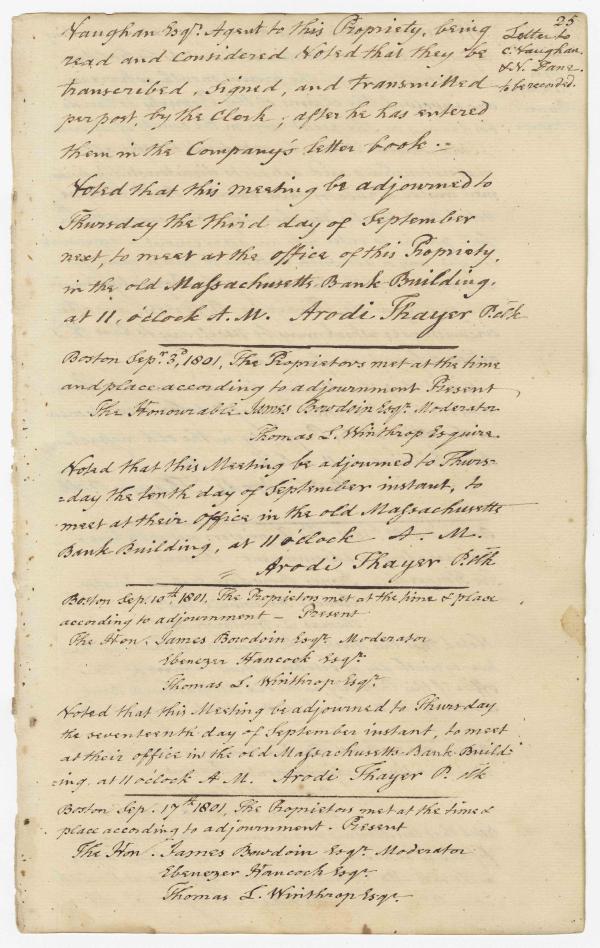 25
Vaughan Esqr. Agent to this Propriety, being
read and considered Voted that they be
transcribed, Signed, and transmitted
per post, by the Clerk; after he has entered
them in the Company's letter book.=
Letter to
C. Vaughan
& N. Dane.
to be recorded.
Voted that this meeting be adjourned to
Thursday the third day of September
next, to meet at the office of this Propriety,
in the old Massachusetts Bank Building,
at 11, o'clock A. M. Arodi Thayer P. Clk
Boston Sepr. 3d, 1801, The Proprietors met at the time
and place according to adjournment Present
The Honourable James Bowdoin Esqr. Moderator
Thomas L. Winthrop Esquire.
Voted that this Meeting be adjourned to Thurs=
=day the tenth day of September instant, to
meet at their office in the old Massachusetts
Bank Building, at 11 o'clock A. M.
Arodi Thayer P. Clk
Boston Sep. 10th, 1801, The Proprietors met at the time & place
according to adjournment – Present
The Hon. James Bowdoin Esqr. Moderator
Ebenezer Hancock Esqr.
Thomas L. Winthrop Esqr.
Voted that this Meeting be adjourned to Thursday
the seventeenth day of September instant, to meet
at their office in the old Massachusetts Bank Build=
=ing, at 11 o'clock A. M. Arodi Thayer P. Clk
Boston Sep. 17th 1801, The Proprietors met at the time &
place according to adjournment. Present
The Hon. James Bowdoin Esqr. Moderator
Ebenezer Hancock Esqr.
Thomas L. Winthrop Esqr.